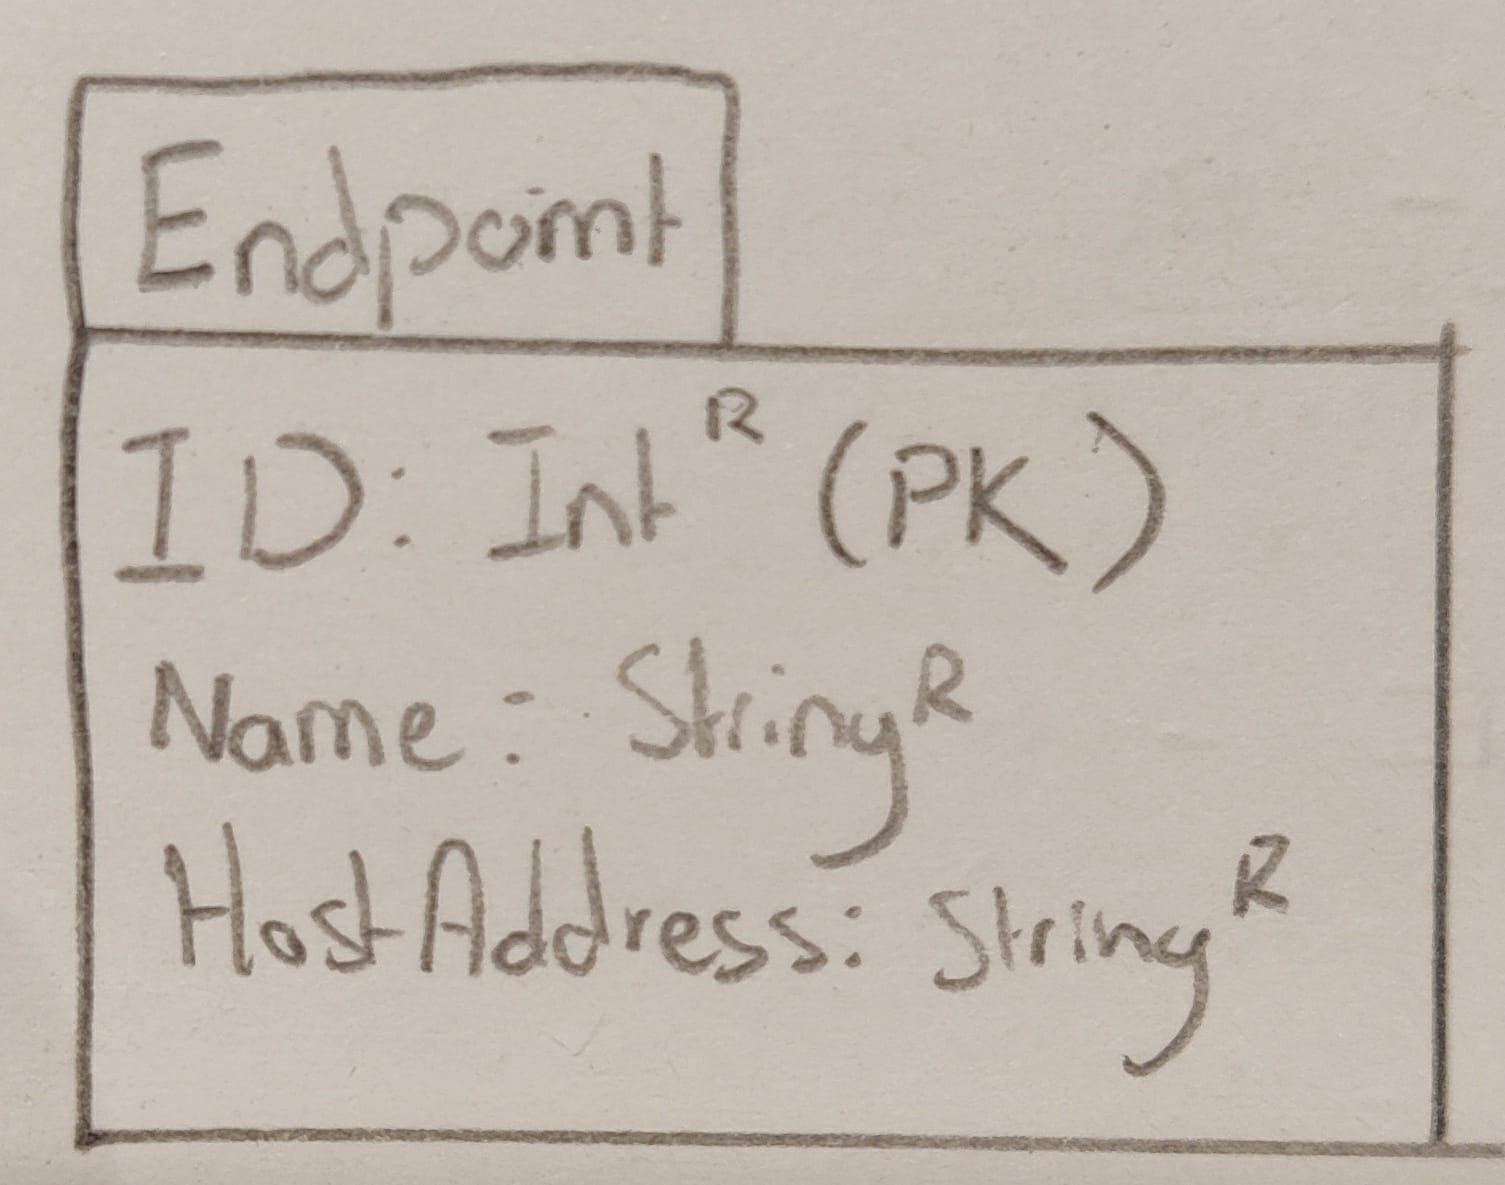 Endpoint
ID: Int R (PK)
Name: String R
HostAddress: String R